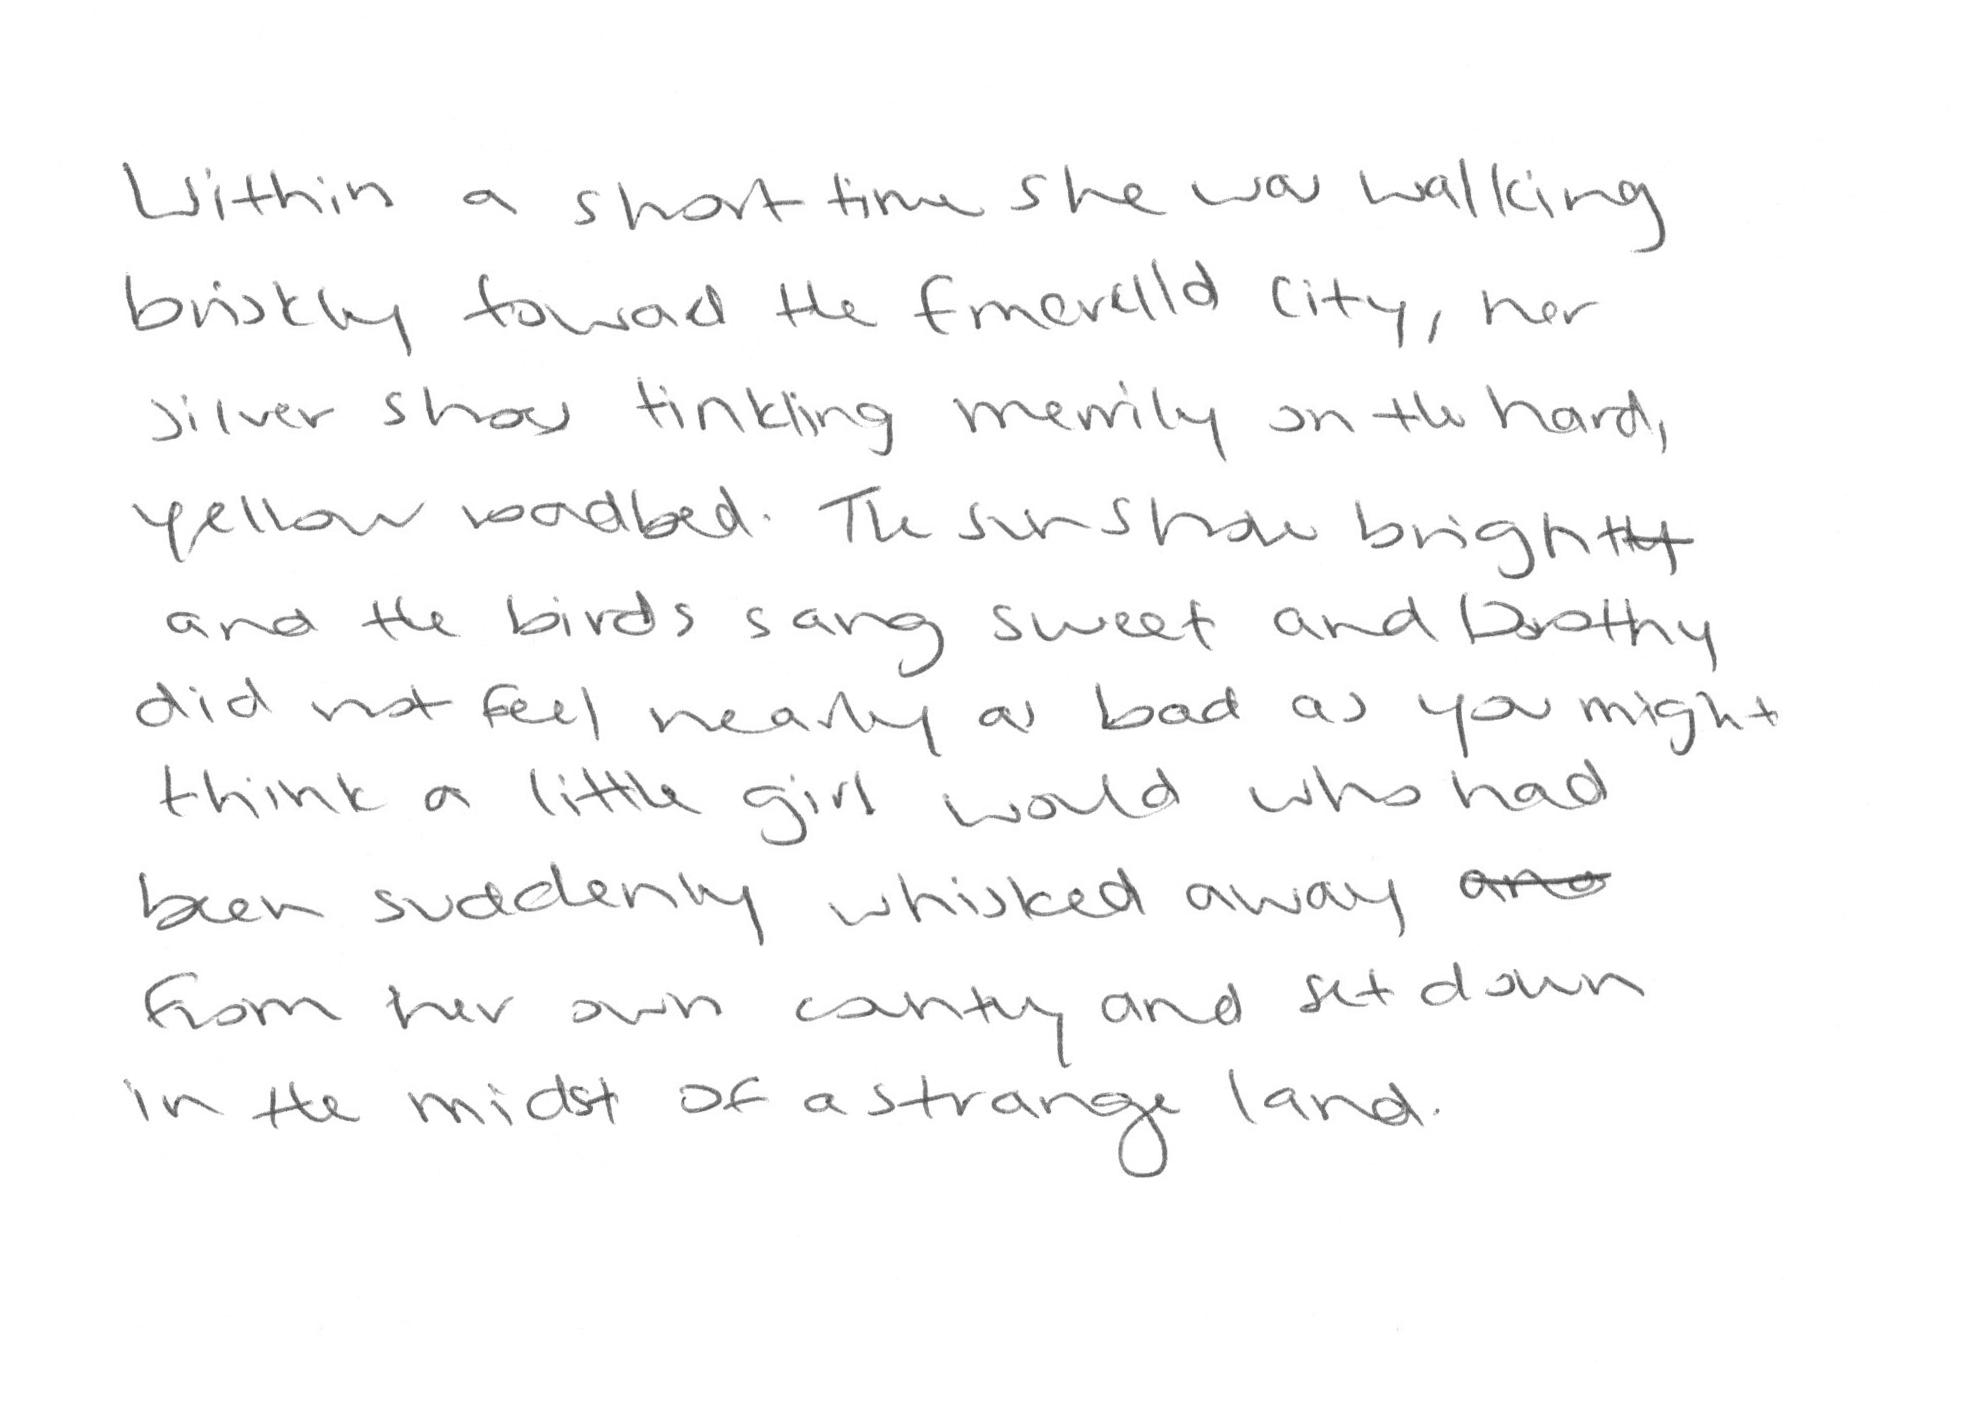 Within a short time she was walking
briskly toward the Emerald City, her
silver shoes tinkling merrily on the hard,
yellow roadbed. The sun shone bright
and the birds sang sweet and Dorothy
did not feel nearly as bad as you might
think a little girl would who had
been suddenly whisked away and
from her own country and set down
in the midst of a strange land.